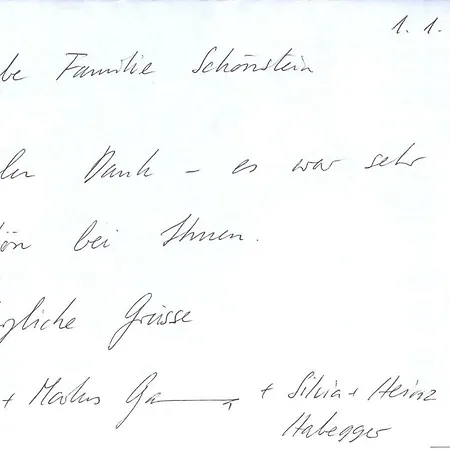 1. 1.
be Familie Schönstein
len Dank – es war sehr
ön bei Ihnen.
rzliche Grüsse
+ Markus + Silvia + Heinz
Habegger